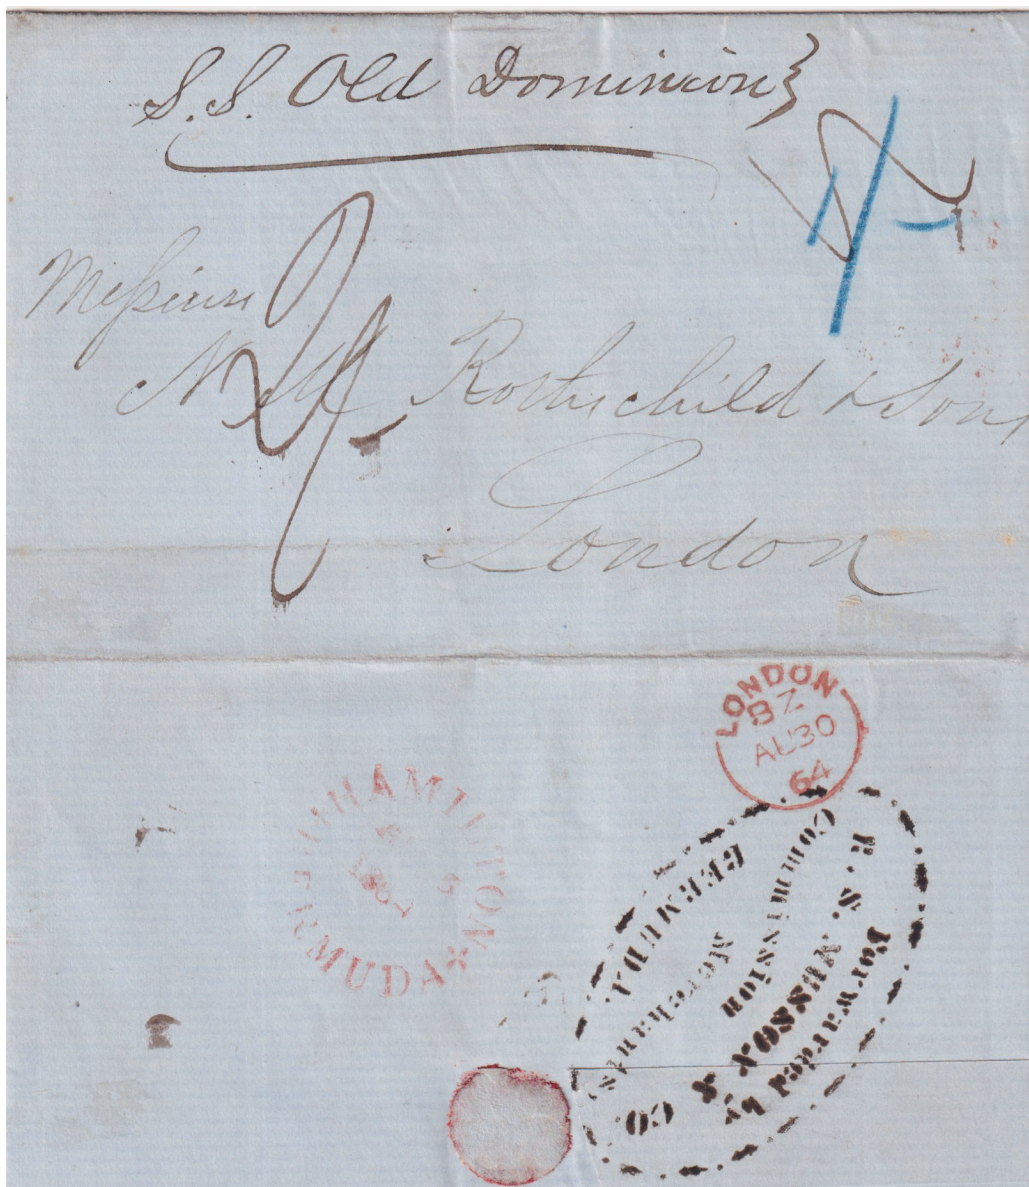 S.S. Old Dominion}
1/-
Messieurs
N M Rothschild & Sons
London
LONDON
BZ
AU 30
64
HAMILTON
BERMUDA
Forwarded by
R. S. MUSSON & CO
Commission
Merchants,
BERMUDA.